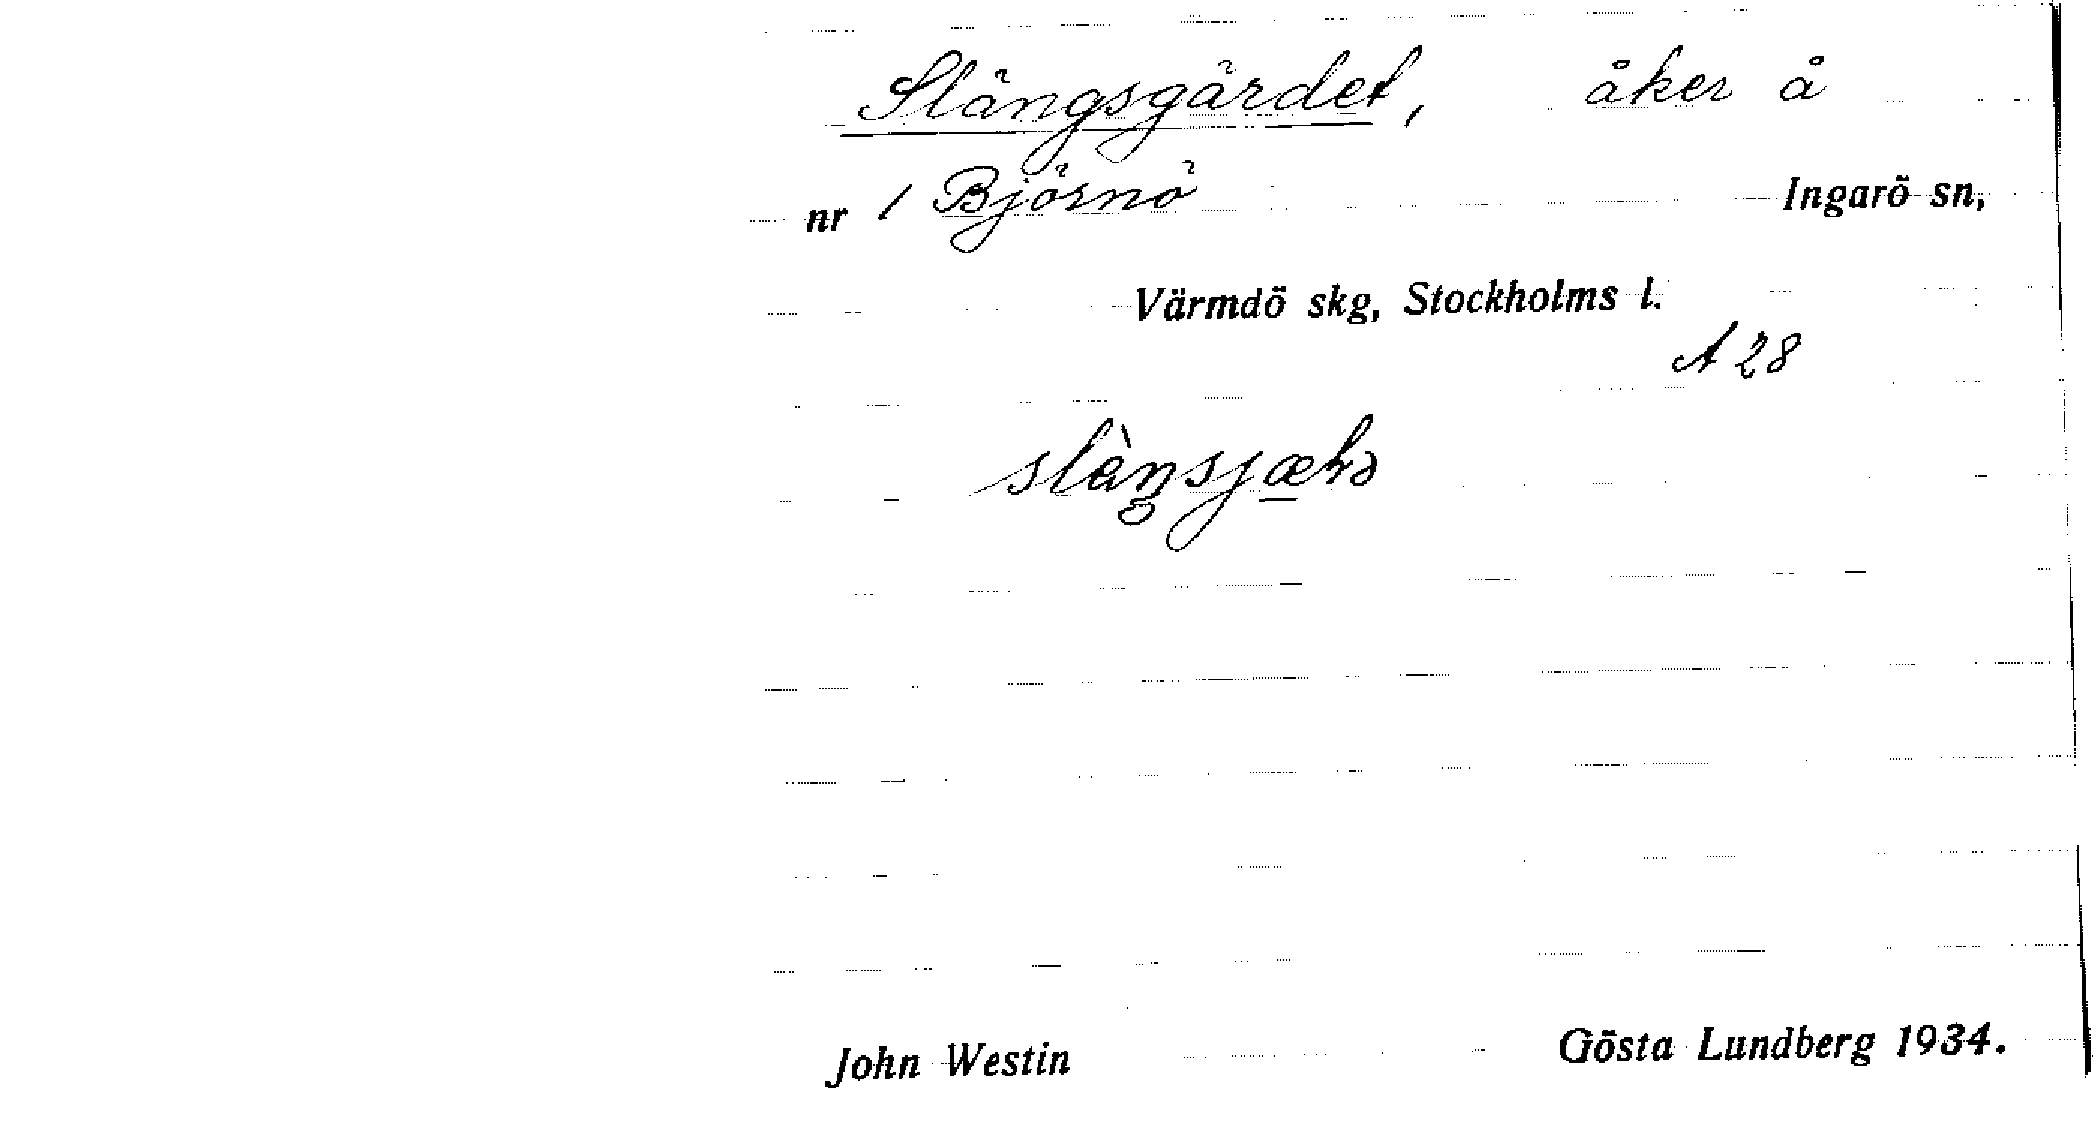 Slängsgärdet, åker å
nr 1 Björnö Ingarö sn,
Värmdö skg, Stockholms l.
A 28
John Westin Gösta Lundberg 1934.